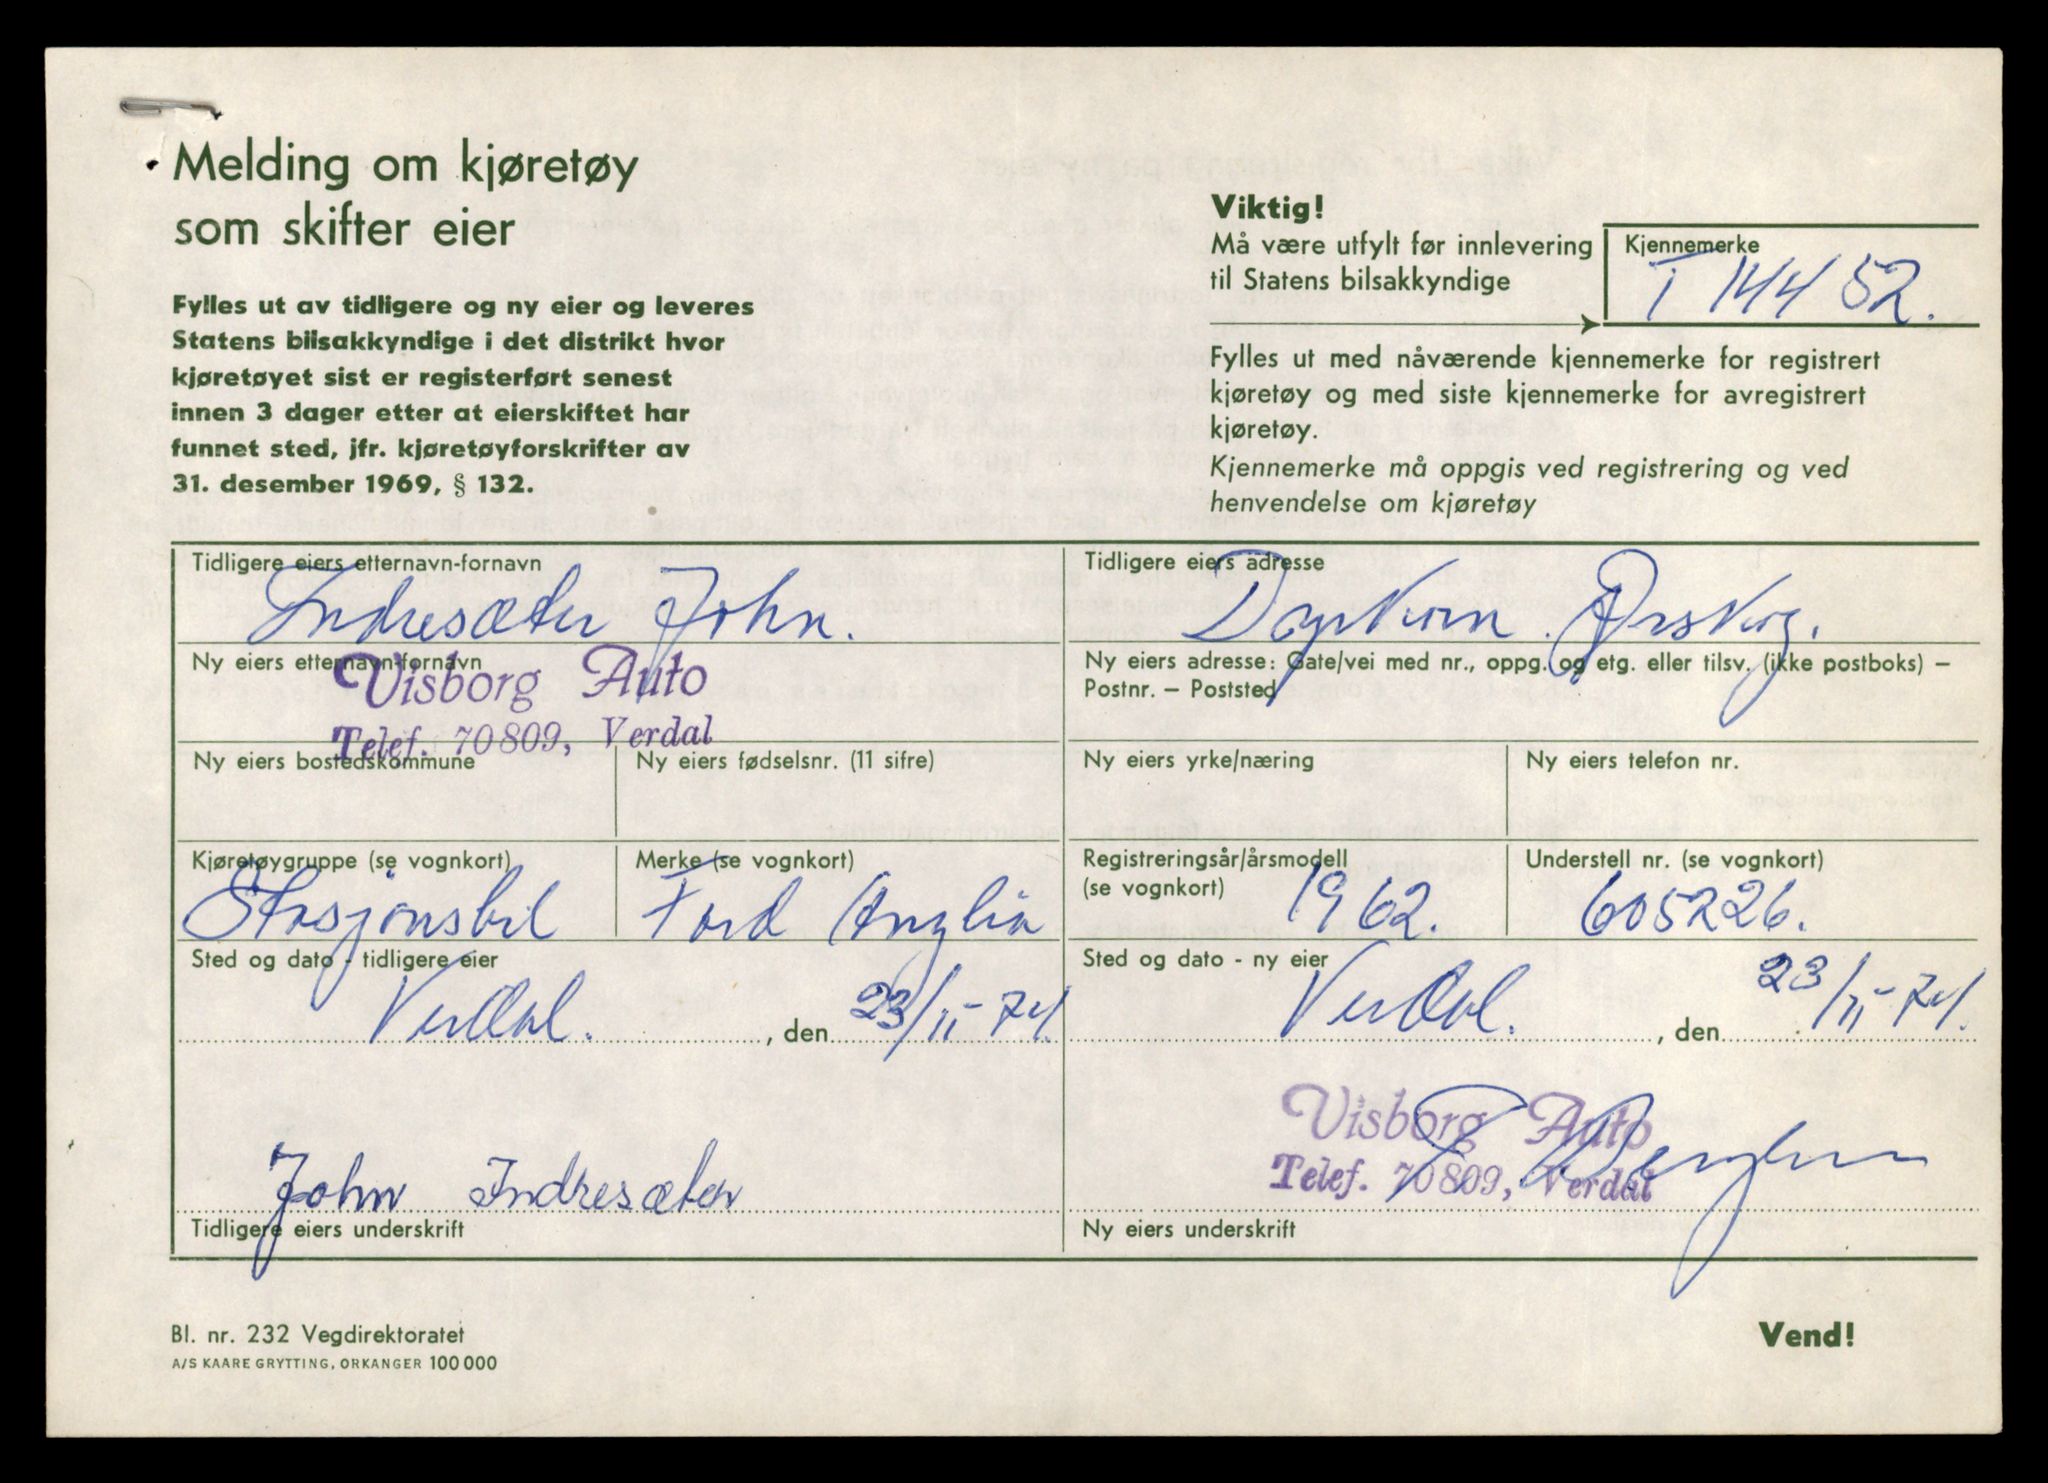 Melding om kjøretøy
som skifter eier
Fylles ut av tidligere og ny eier og leveres
Statens bilsakkyndige i det distrikt hvor
kjøretøyet sist er registerført senest
innen 3 dager etter at eierskiftet har
funnet sted, jfr. kjøretøyforskrifter av
31. desember 1969, § 132.
Viktig!
Må være utfylt før innlevering
til Statens bilsakkyndige
Kjennemerke
T 14452.
Fylles ut med nåværende kjennemerke for registrert
kjøretøy og med siste kjennemerke for avregistrert
kjøretøy.
Kjennemerke må oppgis ved registrering og ved
henvendelse om kjøretøy
Tidligere eiers etternavn-fornavn
Indresæter John.
Tidligere eiers adresse
Ørskog.
Ny eiers etternavn-fornavn
Visborg Auto
Telef. 70809, Verdal
Ny eiers adresse: Gate/vei med nr., oppg. og etg. eller tilsv. (ikke postboks) –
Postnr. – Poststed
Ny eiers bostedskommune
Ny eiers fødselsnr. (11 sifre)
Ny eiers yrke/næring
Ny eiers telefon nr.
Kjøretøygruppe (se vognkort)
Stasjonsbil
Merke (se vognkort)
Ford Anglia
Registreringsår/årsmodell
(se vognkort)
1962.
Understell nr. (se vognkort)
605226.
Sted og dato - tidligere eier
Verdal. , den 23/11-74.
Sted og dato - ny eier
Verdal. , den 23/11-74.
John Indresæter
Tidligere eiers underskrift
Visborg Auto
Telef. 70809, Verdal
Ny eiers underskrift
Bl. nr. 232 Vegdirektoratet
A/S KAARE GRYTTING, ORKANGER 100 000
Vend!